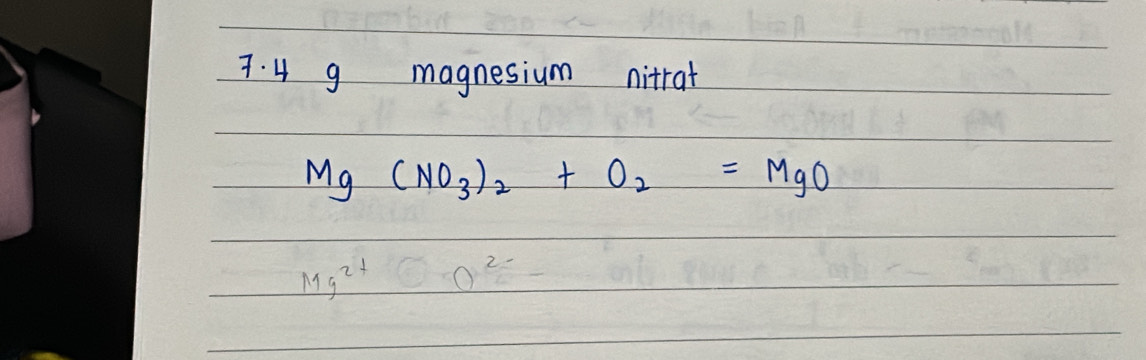 7.4 g magnesium nitrat
Mg (NO₃)₂ + O₂ = MgO
Mg²⁺ O²⁻